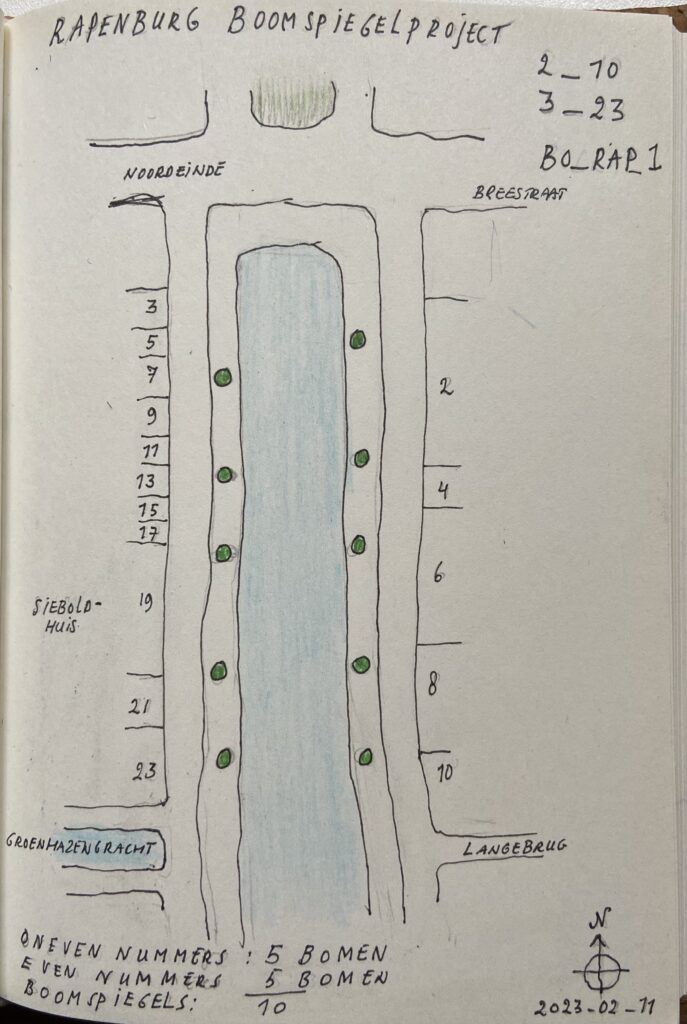 RAPENBURG BOOMSPIEGELPROJECT
2_10
3_23
BO_RAP_1
NOORDEINDE
BREESTRAAT
3
5
7
9
11
13
15
17
19
SIEBOLD-
HUIS
21
23
2
4
6
8
10
GROENHAZENGRACHT
LANGEBRUG
ONEVEN NUMMERS : 5 BOMEN
EVEN NUMMERS 5 BOMEN
BOOMSPIEGELS: 10
N
2023-02-11